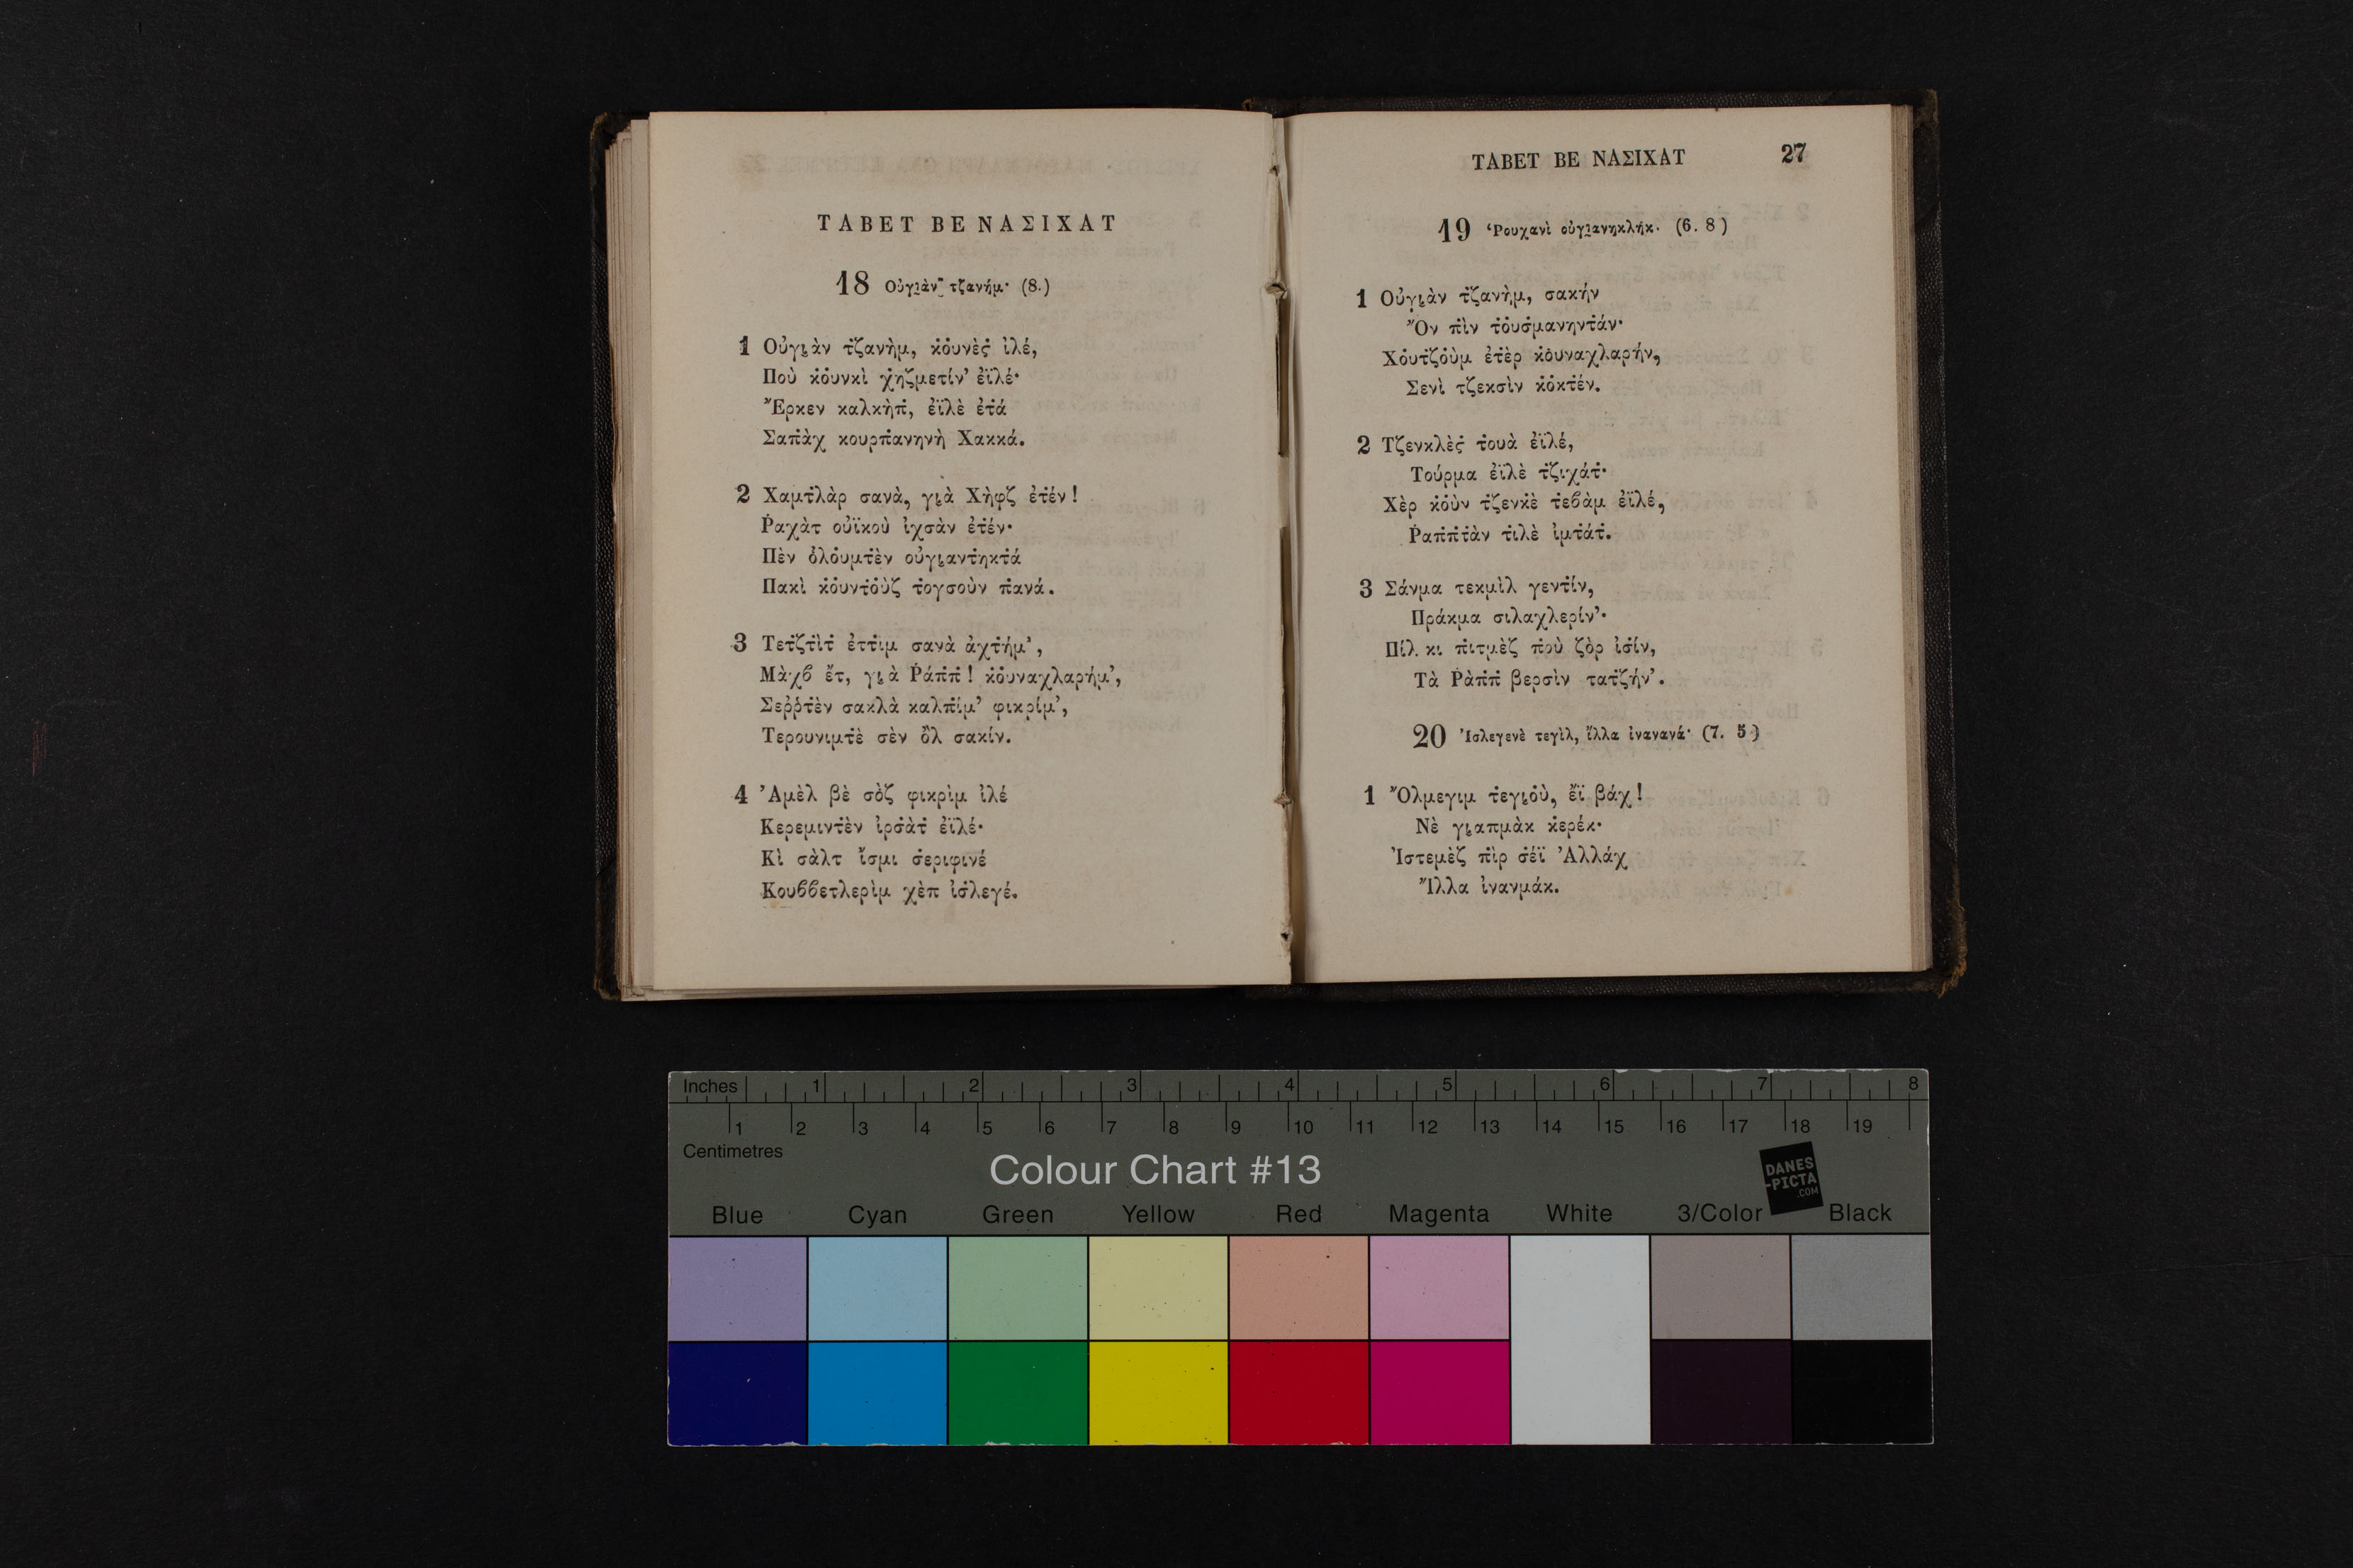 ΤΑΒΕΤ ΒΕ ΝΑΣΙΧΑΤ
18 Οὐγι̲ὰν τζανήμ· (8.)
1 Οὐγι̲ὰν τ̇ζανὴμ, κ̇ο̇υνὲς̇ ἰλέ,
Ποὺ κ̇ο̇υνκὶ χ̇ηζμετίν’ ἐϊλέ·
Ἔρκεν καλκὴπ̇, ἐϊλὲ ἐτ̇ά
Σαπ̇ὰχ κουρπ̇ανηνὴ Χακκά.
2 Χαμτ̇λὰρ σανὰ, γι̲ὰ Χὴφζ ἐτ̇έν!
Ῥαχὰτ οὐϊκοὺ ἰχσὰν ἐτ̇έν·
Πὲν ὀλο̇υμτ̇ὲν οὐγι̲αντ̇ηκτά
Πακὶ κ̇ο̇υντ̇ο̇ὺζ τ̇ογσοὺν π̇ανά.
3 Τετ̇ζτ̇ὶτ̇ ἐττ̇ιμ σανὰ ἀχτ̇ήμ’,
Μὰχϐ ἔτ, γι̲ὰ Ῥάπ̇π̇! κ̇ο̇υναχλαρήμ’,
Σεῤῥτ̇ὲν σακλὰ καλπ̇ίμ’ φικρίμ’,
Τερουνιμτ̇ὲ σὲν ὂλ σακίν.
4 Ἀμὲλ βὲ σὸζ φικρὶμ ἰλέ
Κερεμιντ̇ὲν ἰρσ̇ὰτ̇ ἐϊλέ·
Κὶ σὰλτ ἴσμι σ̇εριφινέ
Κουϐϐετλερὶμ χὲπ ἰσ̇λεγέ.
ΤΑΒΕΤ ΒΕ ΝΑΣΙΧΑΤ 27
19 Ῥουχανὶ οὐγι̲ανηκλήκ· (6. 8)
1 Οὐγι̲ὰν τ̇ζανὴμ, σακήν
Ὂν π̇ὶν τ̇ο̇υσ̇μανηντ̇άν·
Χο̇υτ̇ζο̇ὺμ ἐτ̇ὲρ κ̇ο̇υναχλαρήν,
Σενὶ τζεκσὶν κ̇ὀκτ̇έν.
2 Τζενκλὲς̇ τ̇ουὰ ἐϊλέ,
Τούρμα ἐϊλὲ τ̇ζιχάτ̇·
Χὲρ κ̇ο̇ὺν τ̇ζενκ̇ὲ τ̇εϐὰμ ἐϊλέ,
Ῥαπ̇π̇τ̇ὰν τιλὲ ἰμτ̇άτ̇.
3 Σάνμα τεκμὶλ γεντ̇ίν,
Πράκμα σιλαχλερίν’·
Πίλ κι π̇ιτμὲζ π̇οὺ ζὸρ ἰσ̇ίν,
Τὰ Ῥὰπ̇π̇ βερσὶν τατ̇ζήν’.
20 Ἰσλεγενὲ τεγὶλ, ἴλλα ἰνανανά· (7. 5)
1 Ὂλμεγιμ τ̇εγιο̇ὺ, ἔϊ βάχ!
Νὲ γι̲απμὰκ κ̇ερέκ·
Ἰστεμὲζ π̇ὶρ σ̇έϊ Ἀλλάχ
Ἴλλα ἰνανμάκ.
Inches 1 2 3 4 5 6 7 8
1 2 3 4 5 6 7 8 9 10 11 12 13 14 15 16 17 18 19
Centimetres
Colour Chart #13
DANES
-PICTA
.COM
Blue Cyan Green Yellow Red Magenta White 3/Color Black